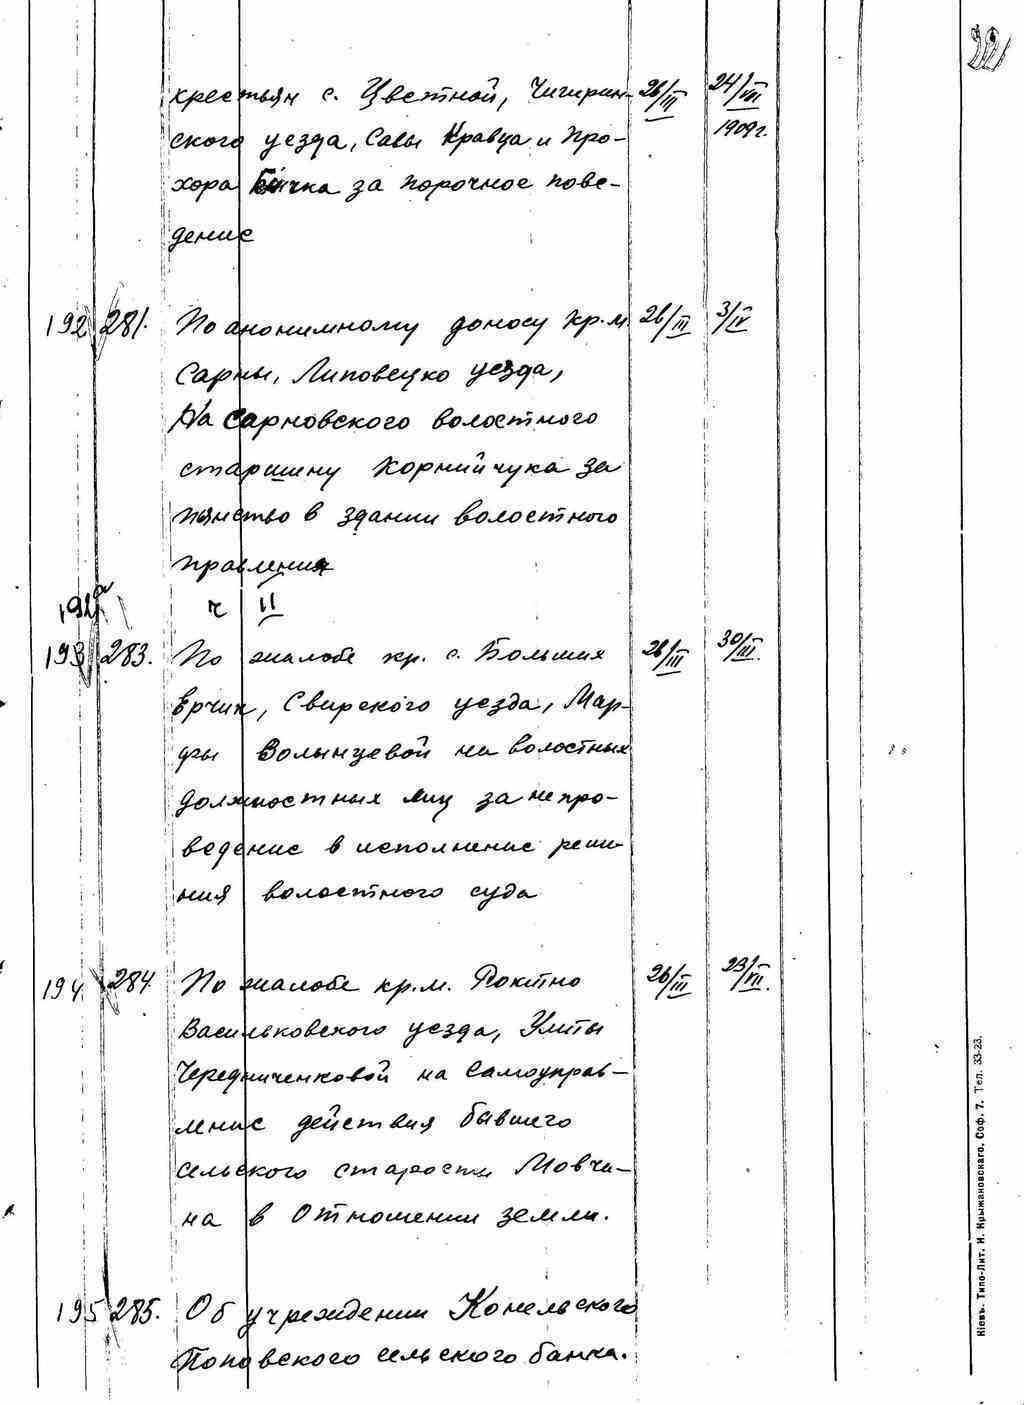 221
крестьян с. Цветной, Чигирин- 26/III 24/VIII
ского уезда, Савы Кравца и Про- 1909 г.
хора Бычка за порочное пове-
дение
192 281. По анонимному доносу кр. м. 26/III 3/IV
Сарны, Липовецко уезда,
На Сарновского волостного
старшину Корнийчука за
пянство в здании волостного
правления
192а ч II
193 283. По жалобе кр. с. Больших 26/III 30/III.
Ерчик, Свирского уезда, Мар-
фы Волынцевой на волостных
должностных лиц за непро-
ведение в исполнение реше-
ния волостного суда
194. 284. По жалобе кр. м. Рокитно 26/III 23/VII.
Васильковского уезда, Улиты
Чередниченковой на Самоуправ-
ление действия бывшего
сельского старосты Мовча-
на в отношении земли.
195 285. Об учреждении Конельского
Поповского сельского банка.
Кіевъ. Типо-Лит. И. Крыжановскаго. Соф. 7. Тел. 33-23.